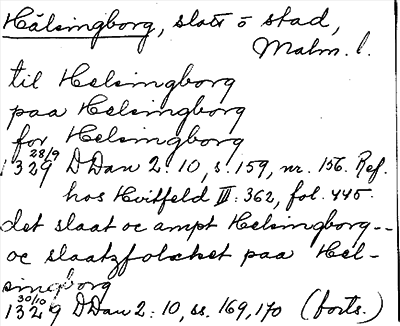 Hälsingborg, slott o stad,
Malm. l.
til Helsingborg
paa Helsingborg
for Helsingborg
1329 28/9 DDan 2: 10, s. 159, nr. 156. Ref.
hos Hvitfeld III: 362, fol. 445.
det slaat oc ampt Helsingborg--
oc slaatzfolcket paa Hel-
singborg
1329 30/10 DDan 2: 10, ss. 169, 170 (forts.)